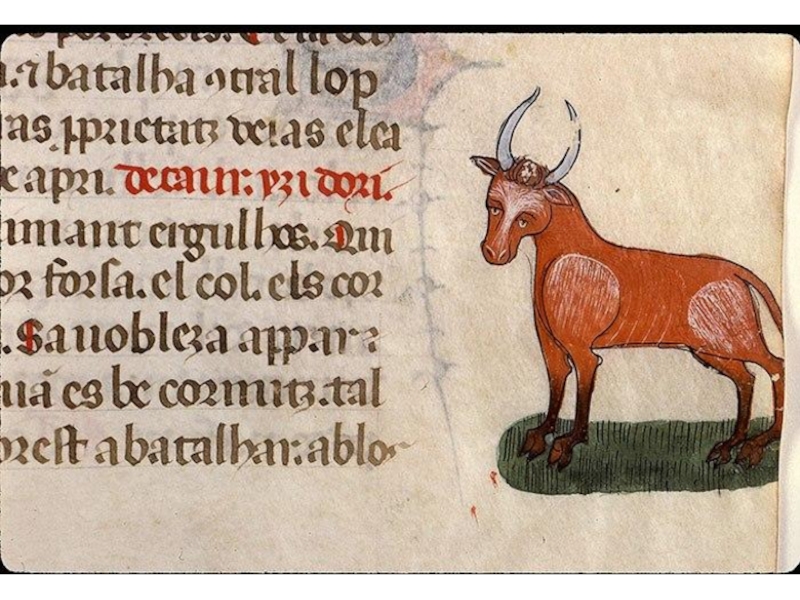 a. ⁊ batalha ꝯtral lop
as ꝓprietatz deias el ca
e apri. de taur. yzidori.
mant ergulhos. Am
or forsa. el col. els cor
. Sa nobleza appar a
es be cormitz. tal
orest a batalhar. ablo